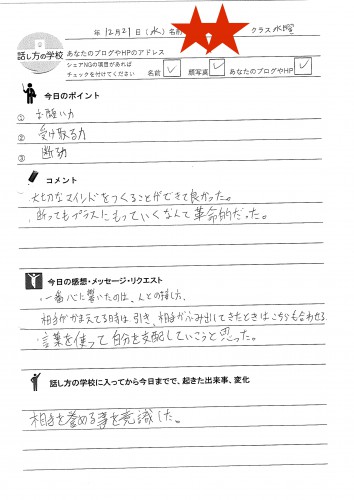 年 12月 21日 (水) 名前 クラス 水曜
話し方の学校
あなたのブログやHPのアドレス
シェアNGの項目があれば
チェックを付けてください 名前 ✓ 顔写真 ✓ あなたのブログやHP ✓
今日のポイント
① お願い力
② 受け取る力
③ 断る力
コメント
大切なマインドをつくることができて良かった。
断ってもプラスにもっていくなんて革命的だった。
今日の感想・メッセージ・リクエスト
・一番心に響いたのは、人との
相手がかまえてる時は引き、相手がふみ出してきたときはこちらも合わせる
・言葉を使って自分を支配していこうと思った。
話し方の学校に入ってから今日までで、起きた出来事、変化
相手を誉める事を意識した。